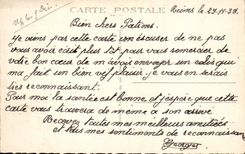 CARTE POSTALE Reims le 29-11-39
Bien chers Patrons.
Je viens par cette carte m'excuser de ne pas
vous avoir écrit plus tôt pas vous remercier de
votre bon cœur de m'avoir envoyer un colis qui
ma fait un bien vif plaisir, je vous en serais
très reconnaissant.
Pour ma santée est bonne et j'espère que cette
carte vous trouvera de même à son arrivé
Recevez toutes mes meilleures amitiées
et tous mes sentiments de reconnaissance
Georges